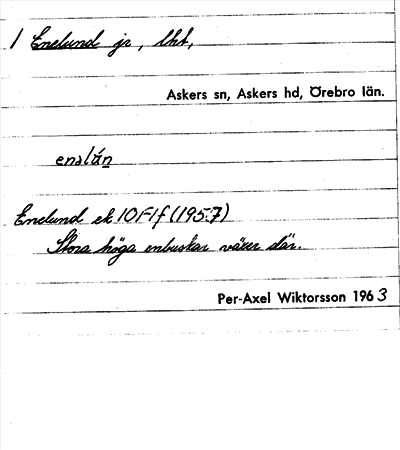 1 Enelund jr, lht,
Askers sn, Askers hd, Örebro län.
enslán
Enelund ek 10F1f (1957)
Stora höga enbuskar växer där.
Per-Axel Wiktorsson 1963